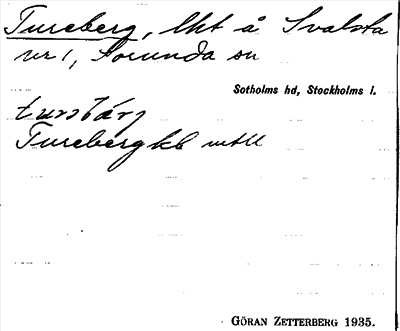 Tureberg, lht å Svalsta
nr 1, Sorunda sn
Sotholms hd, Stockholms l.
Tureberg kb
GÖRAN ZETTERBERG 1935.